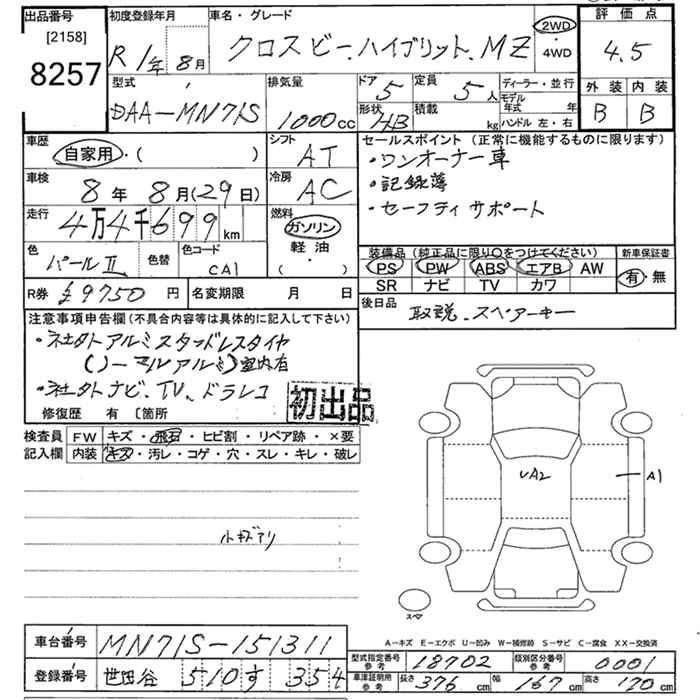 出品番号
[2158]
8257
初度登録年月
R 1年 8月
車名・グレード
クロスビー.ハイブリット.MZ
2WD
・
4WD
評価点
4.5
外装 内装
B B
型式
DAA-MN71S
排気量
1000cc
ドア 5
形状 HB
定員 5人
積載 kg
ディーラー・並行
モデル年式 年
ハンドル 左・右
車歴
自家用・( )
シフト
AT
車検
8年 8月(29日)
冷房
AC
走行
4万4千699km
燃料
ガソリン
軽油
( )
色
パールⅡ
色替
色コード
CA1
R券 £9750円
名変期限 月 日
セールスポイント(正常に機能するものに限ります)
・ワンオーナー車
・記録簿
・セーフティサポート
装備品(純正品に限り〇をつけてください)
PS PW ABS エアB AW
SR ナビ TV カワ
新車保証書
有・無
後日品
取説.スペアーキー
注意事項申告欄(不具合内容等は具体的に記入して下さい)
・社外アルミスタッドレスタイヤ
(ノーマルアルミ)室内有
・社外ナビ.TV.ドラレコ
修復歴 有〔箇所
初出品
検査員記入欄
FW キズ・飛石・ヒビ割・リペア跡・×要
内装 キズ・汚レ・コゲ・穴・スレ・キレ・破レ
小キズアリ
UA2
A1
スペ
A-キズ E-エクボ U-凹み W-補修跡 S-サビ C-腐食 XX-交換済
車台番号 MN71S-151311
登録番号 世田谷 510 す 354
型式指定番号参考 18702
類別区分番号参考 0001
車庫証明用参考 長さ 376cm 幅 167cm 高さ 170cm